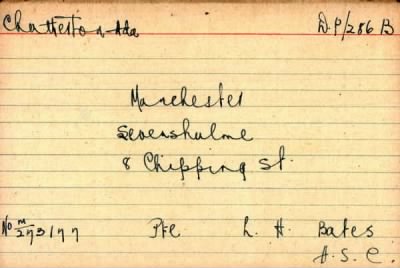 Chatterton Ada D.P/286 B
Manchester
Levenshulme
8 Chipping St.
No M/273177 Pte L. H. Bates
A.S.C.